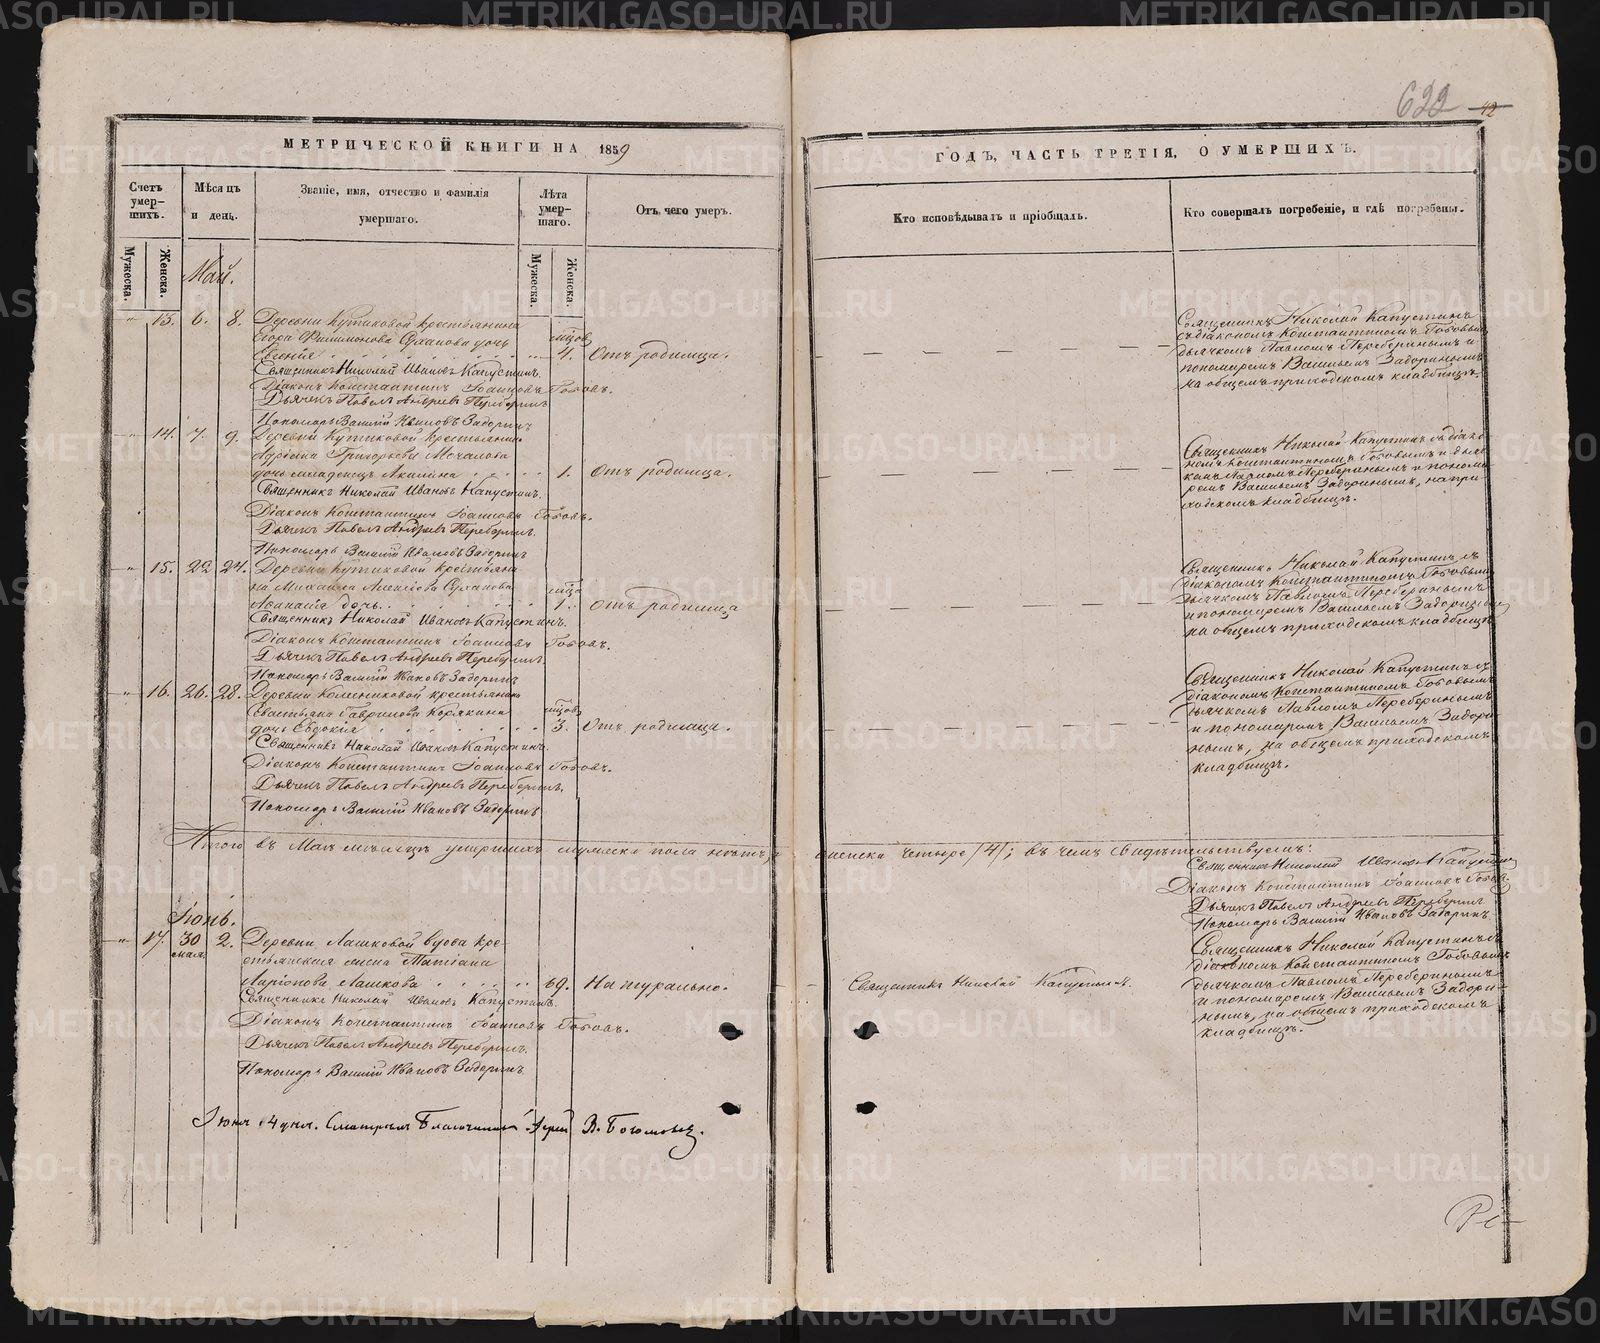 622 42
МЕТРИЧЕСКОЙ КНИГИ НА 1859
ГОДЪ, ЧАСТЬ ТРЕТІЯ, О УМЕРШИХЪ.
Счетъ умер-шихъ.
Мѣсяцъ и день.
Званіе, имя, отчество и фамилія умершаго.
Лѣта умер-шаго.
Отъ чего умеръ.
Кто исповѣдывалъ и пріобщалъ.
Кто совершалъ погребеніе, и гдѣ погребены.
Мужеска. Женска.
Мужеска. Женска.
Май.
" 13. 6. 8. Деревни Кутиковой крестьянина
Егора Филимонова Суханова дочь
4. Отъ родимца.
Священникъ Николай Ивановъ Капустинъ.
Діаконъ Константинъ Іоанновъ Гобовъ.
Дьячекъ Павелъ Андреевъ Переберинъ
Пономарь Василій Ивановъ Задоринъ
Священникъ Николай Капустинъ
съ діакономъ Константиномъ Гобовымъ
дьячкомъ Павломъ Переберинымъ и
пономаремъ Васильемъ Задоринымъ
на общемъ приходскомъ кладбищѣ.
" 14. 7. 9. Деревни Кутиковой крестьянина
Григорьева Мочалова
дочь младенецъ Акилина 1. Отъ родимца.
Священникъ Николай Ивановъ Капустинъ.
Діаконъ Константинъ Іоанновъ Гобовъ.
Дьячекъ Павелъ Андреевъ Переберинъ
Пономарь Василій Ивановъ Задоринъ
Священникъ Николай Капустинъ съ діако-
номъ Константиномъ Гобовымъ и дьяч-
комъ Павломъ Переберинымъ и понома-
ремъ Васильемъ Задоринымъ, на при-
ходскомъ кладбищѣ.
" 15. 22 24. Деревни Кутиковой крестьяни-
на Михаила Алексѣева Суханова
Аѳанасія дочь 1. Отъ родимца
Священникъ Николай Ивановъ Капустинъ.
Діаконъ Константинъ Іоанновъ Гобовъ.
Дьячекъ Павелъ Андреевъ Переберинъ
Пономарь Василій Ивановъ Задоринъ
Священникъ Николай Капустинъ съ
діакономъ Константиномъ Гобовымъ
дьячкомъ Павломъ Переберинымъ
и пономаремъ Васильемъ Задоринымъ
на общемъ приходскомъ кладбищѣ
" 16. 26. 28. Деревни крестьянина
Гаврилова Корякина
дочь Евдокія 3. Отъ родимца.
Священникъ Николай Ивановъ Капустинъ.
Діаконъ Константинъ Іоанновъ Гобовъ.
Дьячекъ Павелъ Андреевъ Переберинъ.
Пономарь Василій Ивановъ Задоринъ
Священникъ Николай Капустинъ съ
діакономъ Константиномъ Гобовымъ
дьячкомъ Павломъ Переберинымъ
и пономаремъ Васильемъ Задори-
нымъ, на общемъ приходскомъ
кладбищѣ.
Итого въ Маѣ мѣсяцѣ умершихъ мужеска пола нѣтъ, а женска четыре /4/; въ чемъ свидѣтельствуемъ:
Священникъ Николай Ивановъ Капустинъ
Діаконъ Константинъ Іоанновъ Гобовъ
Дьячекъ Павелъ Андреевъ Переберинъ
Пономарь Василій Ивановъ Задоринъ
Іюнь.
" 17. 30 мая 2. Деревни Лашковой вдова кре-
стьянская жена Татіана
Ларіонова Лашкова 69. Натурально.
Священникъ Николай Ивановъ Капустинъ.
Діаконъ Константинъ Іоанновъ Гобовъ.
Дьячекъ Павелъ Андреевъ Переберинъ.
Пономарь Василій Ивановъ Задоринъ.
Священникъ Николай Капустинъ.
Священникъ Николай Капустинъ съ
діакономъ Константиномъ Гобовымъ
дьячкомъ Павломъ Переберинымъ
и пономаремъ Васильемъ Задори-
нымъ, на общемъ приходскомъ
кладбищѣ.
Іюня 14 дня. Смотрѣлъ Благочинный Іерей В. Богомо
METRIKI.GASO-URAL.RU